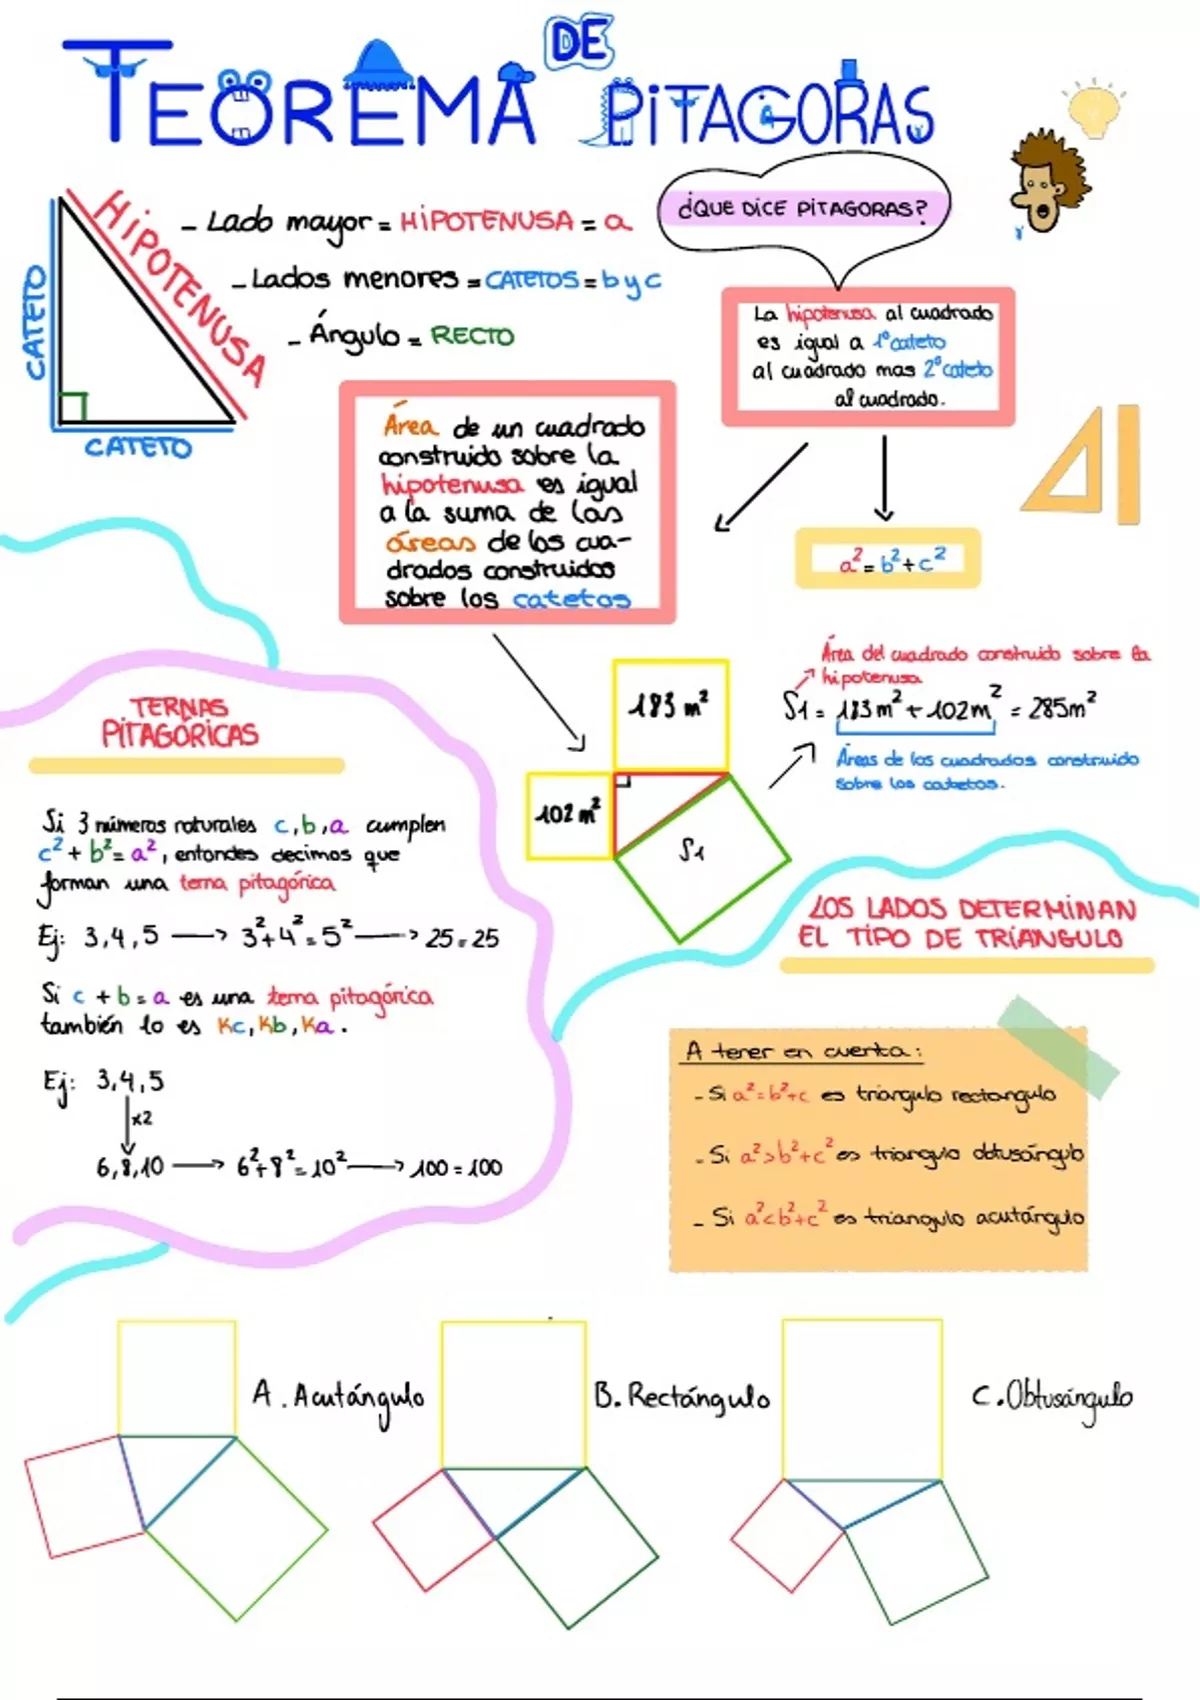 TEOREMA DE PITAGORAS
HIPOTENUSA
CATETO
CATETO
- Lado mayor = HIPOTENUSA = a
- Lados menores = CATETOS = b y c
- Ángulo = RECTO
¿QUE DICE PITAGORAS?
La hipotenusa al cuadrado
es igual a 1º cateto
al cuadrado mas 2º cateto
al cuadrado.
a² = b² + c²
Área de un cuadrado
construido sobre la
hipotenusa es igual
a la suma de las
áreas de los cua-
drados construidos
sobre los catetos
183 m²
102 m²
S1
Área del cuadrado construido sobre la
hipotenusa
S1 = 183 m² + 102 m² = 285 m²
Áreas de los cuadrados construido
sobre los catetos.
TERNAS
PITAGÓRICAS
Si 3 números naturales c, b, a cumplen
c² + b² = a², entondes decimos que
forman una terna pitagórica
Ej: 3, 4, 5 → 3² + 4² = 5² → 25 = 25
Si c + b = a es una terna pitagórica
también lo es Kc, Kb, Ka.
Ej: 3, 4, 5
x2
6, 8, 10 → 6² + 8² = 10² → 100 = 100
LOS LADOS DETERMINAN
EL TIPO DE TRIANGULO
A tener en cuenta:
- Si a² = b² + c es triangulo rectangulo
- Si a² > b² + c² es triangulo obtusángulo
- Si a² < b² + c² es triangulo acutángulo
A. Acutángulo
B. Rectángulo
C. Obtusángulo